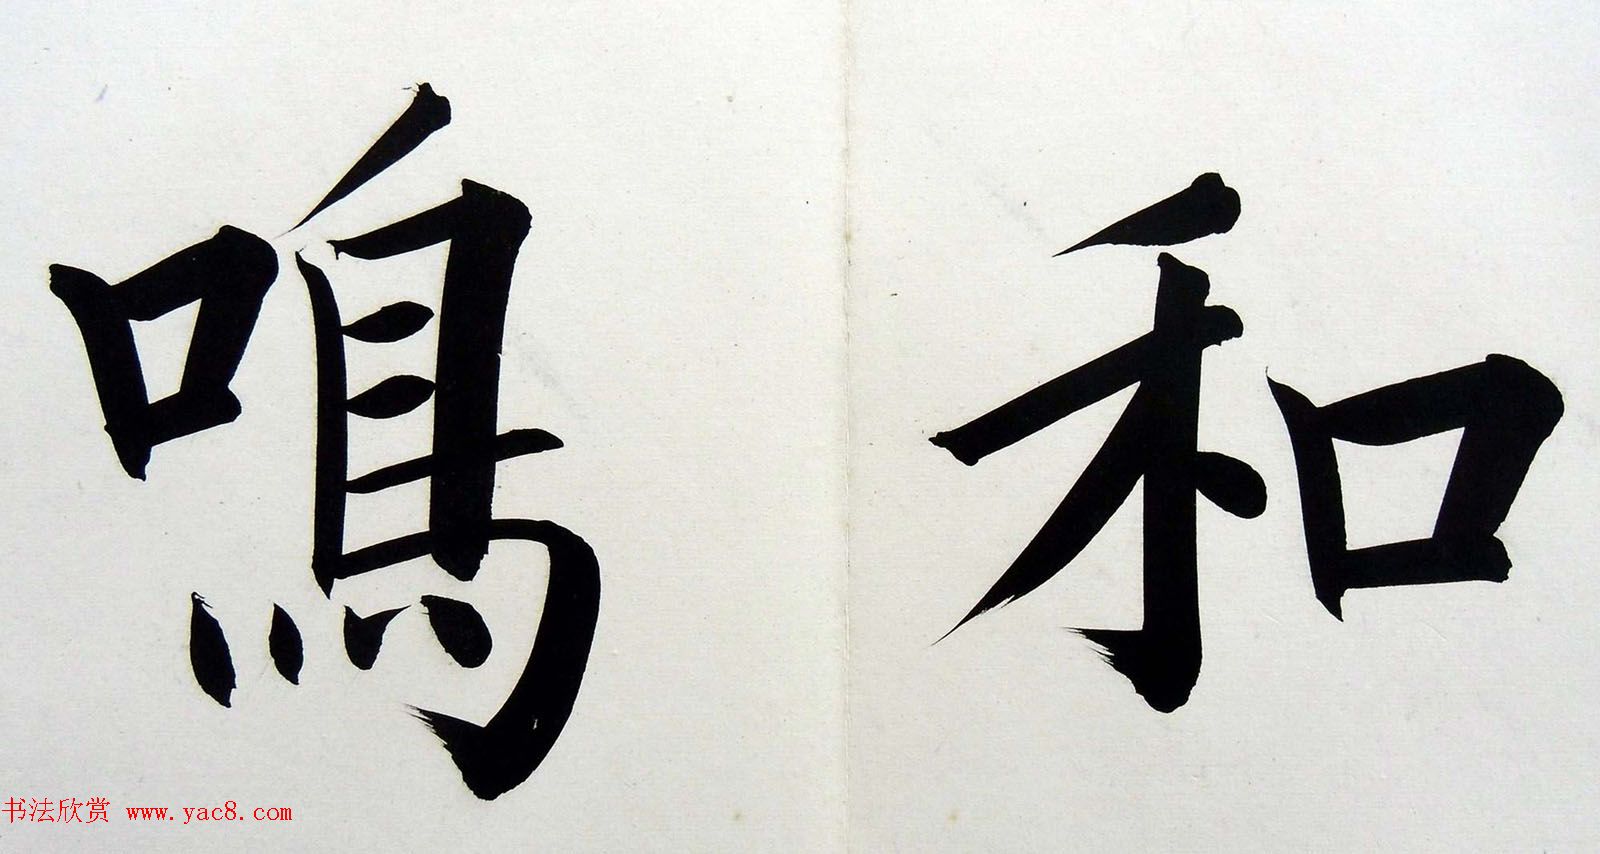 和
鳴
书法欣赏 www.yac8.com